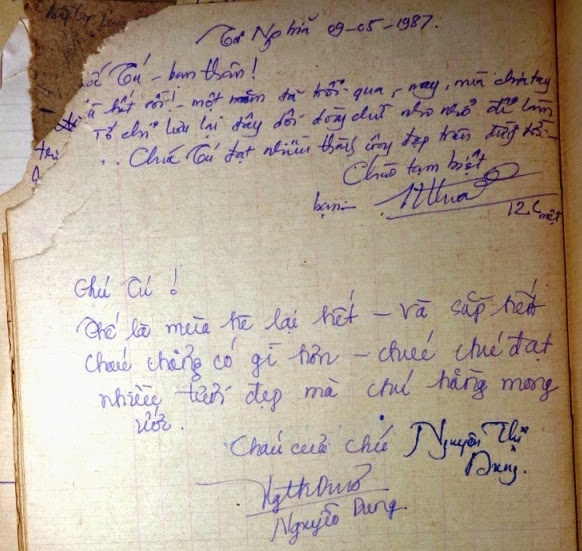 Tư Nghĩa 09-05-1987.
Tú - bạn thân!
hết rồi! - một năm đã trôi qua, nay, mùa chia tay
Tớ chỉ lưu lại đây đôi dòng chữ nho nhỏ để làm
.. Chúc Tú đạt nhiều thành công đẹp trên đường đời -
Chào tạm biệt
bạn:
12C
Chú Tú !
Thế là mùa hè lại hết - và sắp hết
cháu chẳng có gì hơn - chúc chú đạt
nhiều tươi đẹp mà chú hằng mong
ước.
Cháu của chú Nguyễn Thị
Dung.
NgthDung
Nguyễn Dung.